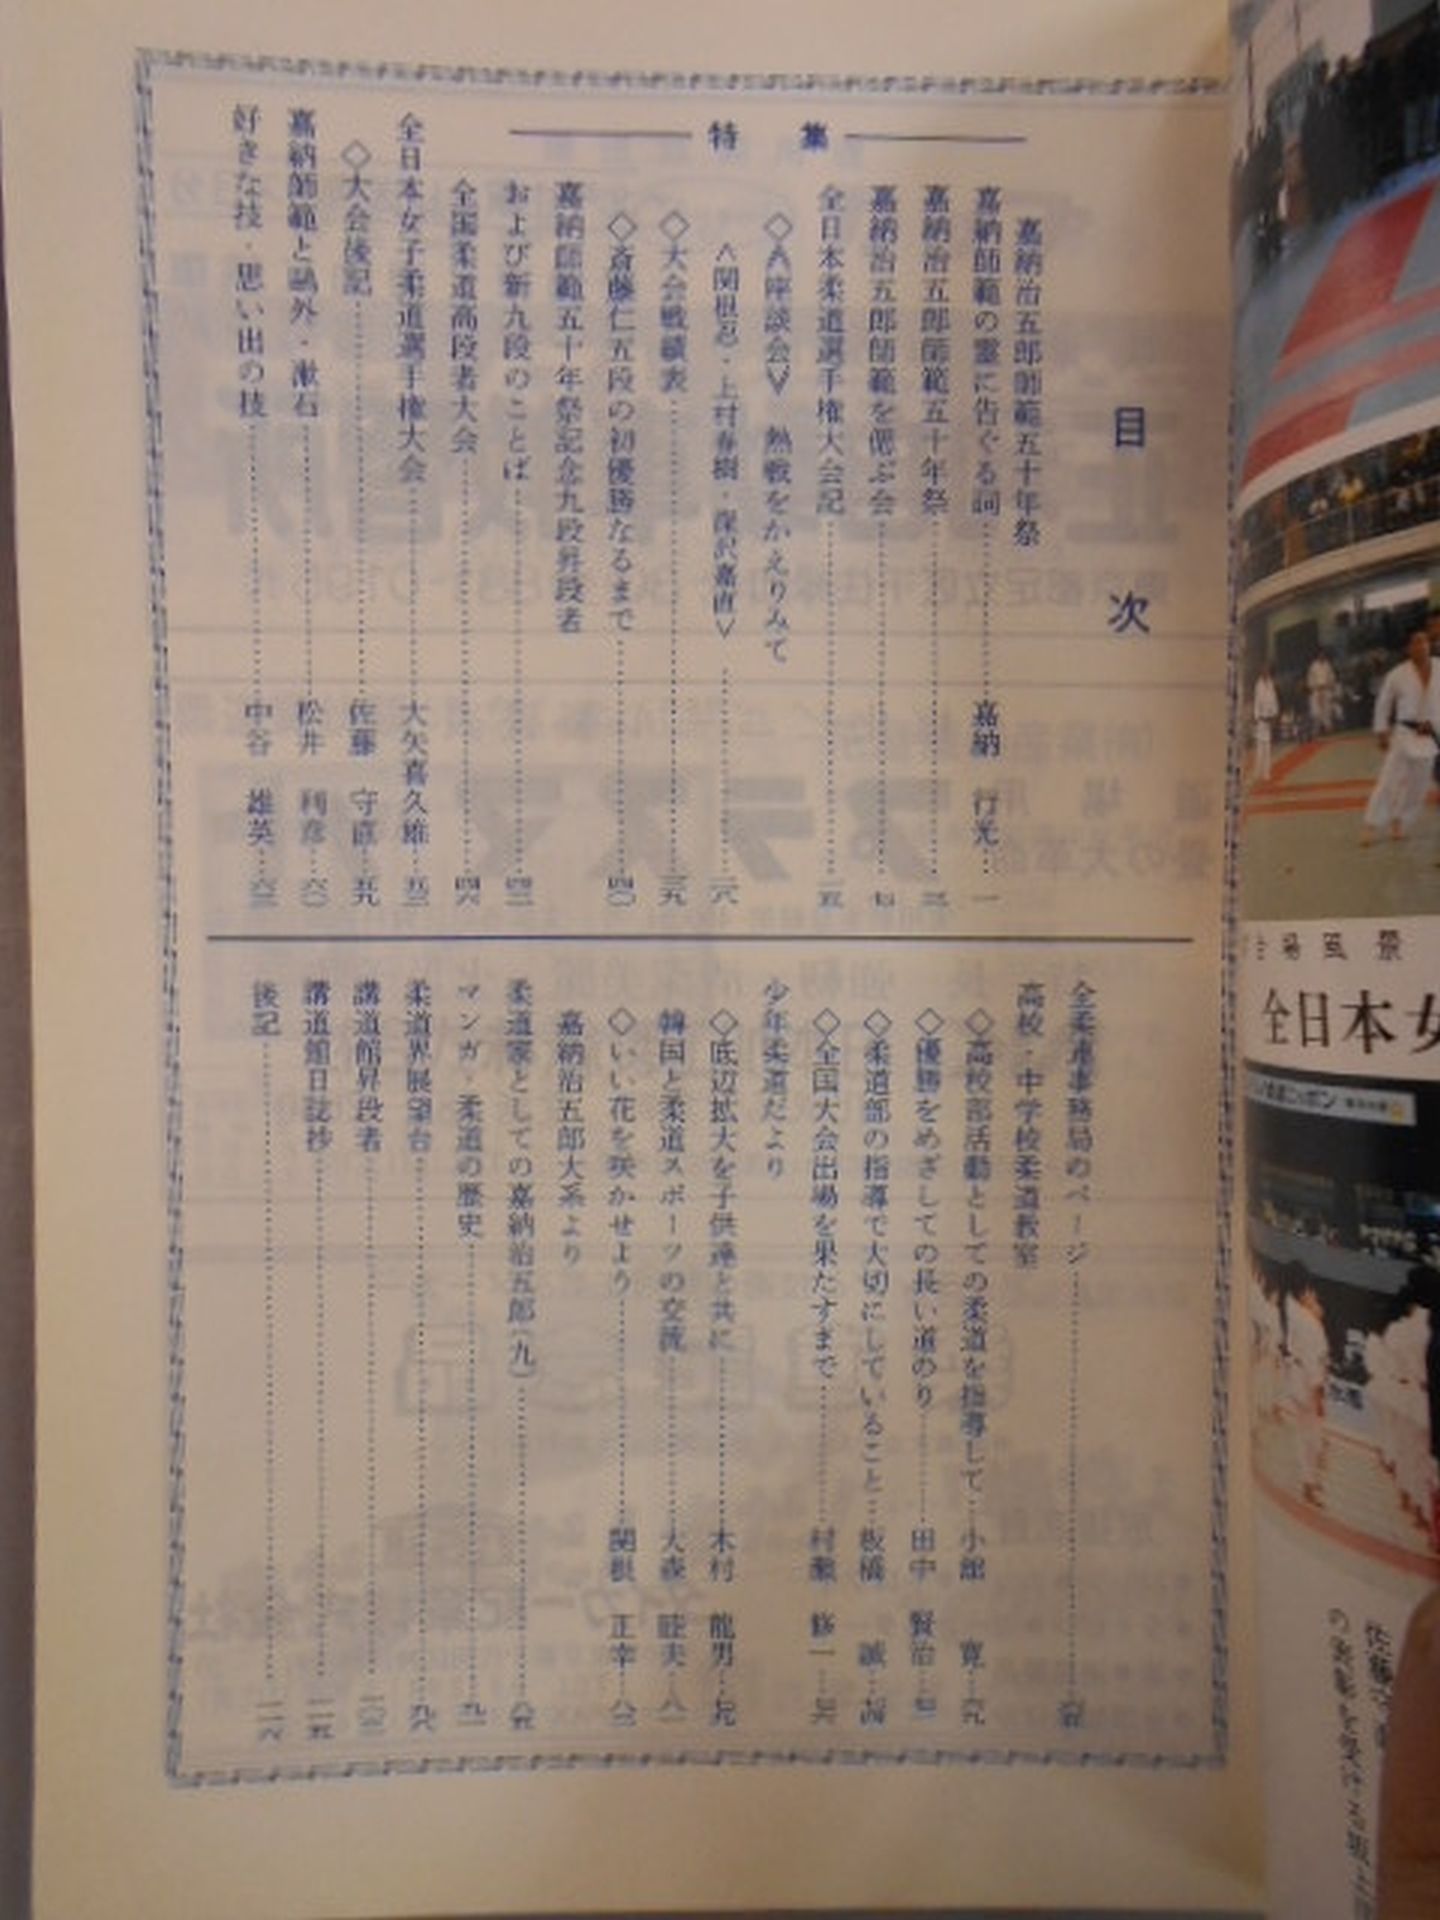 目次
特集
嘉納治五郎師範五十年祭
嘉納師範の霊に告ぐる詞……嘉納 行光……一
嘉納治五郎師範五十年祭……三
嘉納治五郎師範を偲ぶ会……七
全日本柔道選手権大会記
◇∧座談会∨ 熱戦をかえりみて
∧関根忍・上村春樹・深沢嘉直∨
◇大会戦績表
◇斎藤仁五段の初優勝なるまで……四〇
嘉納師範五十年祭記念九段昇段者
および新九段のことば
全国柔道高段者大会……四六
全日本女子柔道選手権大会……大矢喜久雄……五三
◇大会後記……佐藤 守直……五九
嘉納師範と鷗外・漱石……松井 利彦……六〇
好きな技・思い出の技……中谷 雄英
全柔連事務局のページ
高校・中学校柔道教室
◇高校部活動としての柔道を指導して……小館 寛……六九
◇優勝をめざしての長い道のり……田中 賢治
◇柔道部の指導で大切にしていること……板橋 誠
◇全国大会出場を果たすまで……村瀬 修一
少年柔道だより
◇底辺拡大を子供達と共に……木村 龍男……七九
韓国と柔道スポーツの交流……大森 睦夫……八一
◇いい花を咲かせより……関根 正幸
嘉納治五郎大系より
柔道家としての嘉納治五郎(九)……八五
マンガ・柔道の歴史……九一
柔道界展望台……九八
講道館昇段者
講道館日誌抄……一一五
後記……一一六
場風景
全日本女